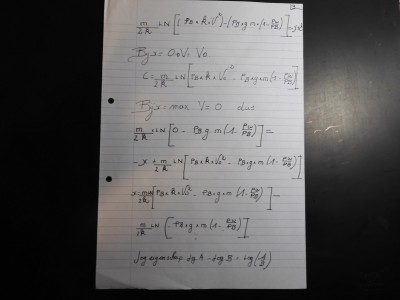 m/2k * LN [(PB * k * V²) - (PB * g * m * (1 - PW/PB))] =
By x = 0 V = V0
C = m/2k * LN [PB * k * V0² - PB * g * m (1 - PW/PB)]
By x = max V = 0 dus
m/2k * LN [0 - PB * g * m (1 - PW/PB)] =
-x + m/2k * LN [PB * k * V0² - PB * g * m (1 - PW/PB)]
x = m/2k [PB * k * V0² - PB * g * m (1 - PW/PB)] -
m/2k LN (-PB * g * m (1 - PW/PB)]
log eigenschap log A - log B = log (A/B)